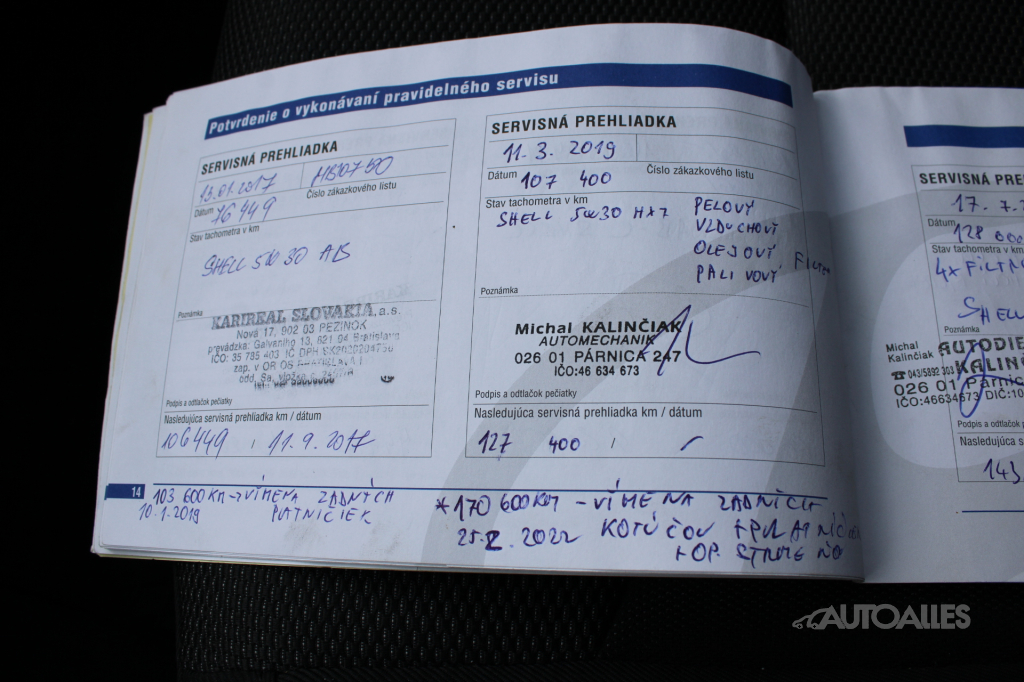 Potvrdenie o vykonávaní pravidelného servisu
SERVISNÁ PREHLIADKA
13.01.2017
Dátum
Číslo zákazkového listu
76449
Stav tachometra v km
SHELL 5W30 AB
Poznámka
KARIREAL SLOVAKIA, a.s.
Nová 17, 902 03 PEZINOK
prevádzka: Galvaniho 13, 821 04 Bratislava
IČO: 35 785 403 IČ DPH
zap. v OR OS
Podpis a odtlačok pečiatky
Nasledujúca servisná prehliadka km / dátum
106449 / 11.9.2017
14
103 600KM → VÍMENA ZADNÝCH
10.1.2019 PLATNIČIEK
SERVISNÁ PREHLIADKA
11.3.2019
Dátum
Číslo zákazkového listu
107 400
Stav tachometra v km
SHELL 5W30 HX7 PELOVÝ
VZDUCHOVÝ
OLEJOVÝ FILTER
PALIVOVÝ
Poznámka
Michal KALINČIAK
AUTOMECHANIK
026 01 PÁRNICA 247
IČO:46 634 673
Podpis a odtlačok pečiatky
Nasledujúca servisná prehliadka km / dátum
127 400 / -
*170 600KM - VÍMENA ZADNÍCH
25.2.2022 KOTÚČOV + PLATNIČ
+ OP. STRMEŇO
SERVISNÁ PRE
17. 7.
Dátum
128 000
Stav tachometra v km
4x FILTR
SHELL
Poznámka
Michal
Kalinčiak
AUTODIE
KALIN
043/5892 303
026 01 Párnic
IČO:46634673 DIČ:10
Podpis a odtlačok p
Nasledujúca se
143
AUTOALLES